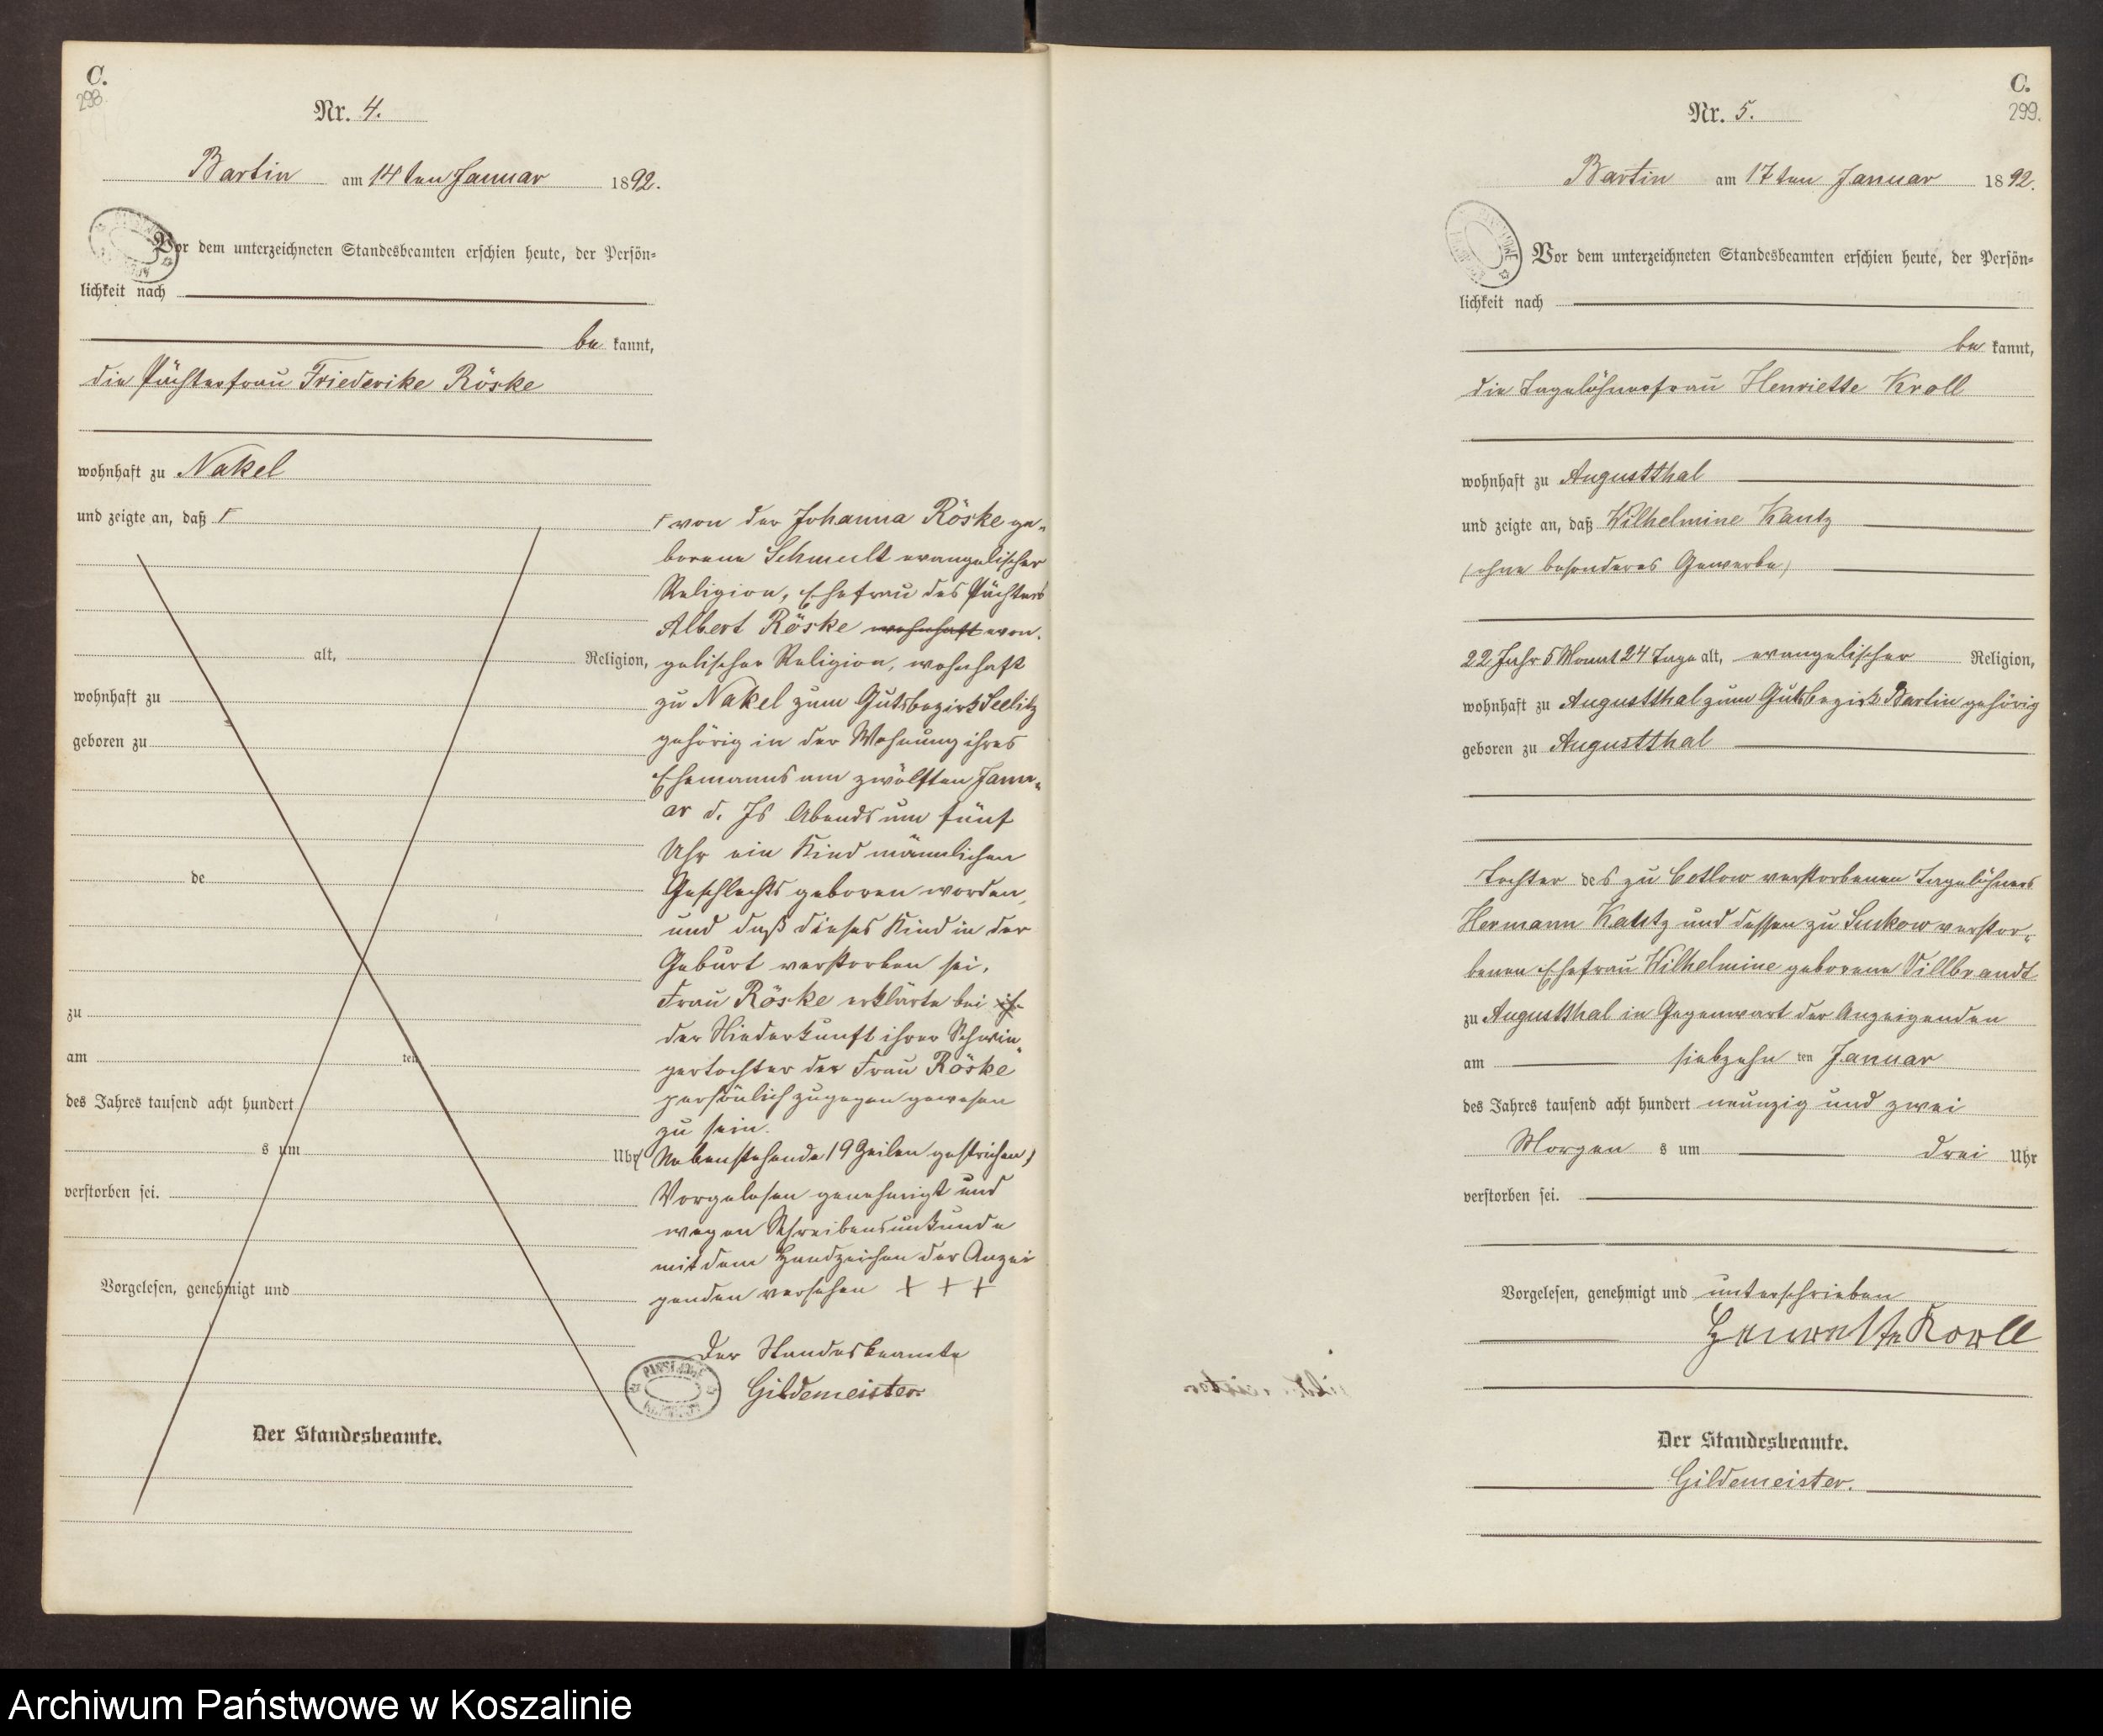 C.
298.
Nr. 4.
Bartin am 14ten Januar 1892.
Vor dem unterzeichneten Standesbeamten erschien heute, der Persön-
lichkeit nach
be kannt,
die Pächterfrau Friederike Röske
wohnhaft zu Nakel
und zeigte an, daß Γ
alt, Religion,
wohnhaft zu
geboren zu
de
zu
am ten
des Jahres tausend acht hundert
s um Uhr
verstorben sei.
Vorgelesen, genehmigt und
Der Standesbeamte.
Γ von der Johanna Röske ge-
borene Schmult evangelischer
Religion, Ehefrau des Pächters
Albert Röske wohnhaft evan-
gelischer Religion, wohnhaft
zu Nakel zum Gutsbezirk Seelitz
gehörig in der Wohnung ihres
Ehemanns am zwölften Janu-
ar d. Js Abends um fünf
Uhr ein Kind männlichen
Geschlechts geboren worden,
und daß dieses Kind in der
Geburt verstorben sei.
Frau Röske erklärte bei ih
der Niederkunft ihrer Schwie-
gertochter der Frau Röske
persönlich zugegen gewesen
zu sein.
(Nebenstehende 19 Zeilen gestrichen)
Vorgelesen genehmigt und
wegen Schreibensunkunde
mit dem Handzeichen der Anzei
genden versehen + + +
Der Standesbeamte
Gildemeister.
C.
299.
Nr. 5.
Bartin am 17ten Januar 1892.
Vor dem unterzeichneten Standesbeamten erschien heute, der Persön-
lichkeit nach
be kannt,
die Tagelöhnerfrau Henriette Kroll
wohnhaft zu Augustthal
und zeigte an, daß Wilhelmine Kautz
(ohne besonderes Gewerbe)
22 Jahr 5 Monat 24 Tage alt, evangelischer Religion,
wohnhaft zu Augustthal zum Gutsbezirk Bartin gehörig
geboren zu Augustthal
Tochter des zu Cotlow verstorbenen Tagelöhners
Hermann Kautz und dessen zu Suckow verstor-
benen Ehefrau Wilhelmine geborene Villbrandt
zu Augustthal in Gegenwart der Anzeigenden
am siebzehn ten Januar
des Jahres tausend acht hundert neunzig und zwei
Morgen s um drei Uhr
verstorben sei.
Vorgelesen, genehmigt und unterschrieben
Henriette Kroll
Der Standesbeamte.
Gildemeister.
Archiwum Państwowe w Koszalinie